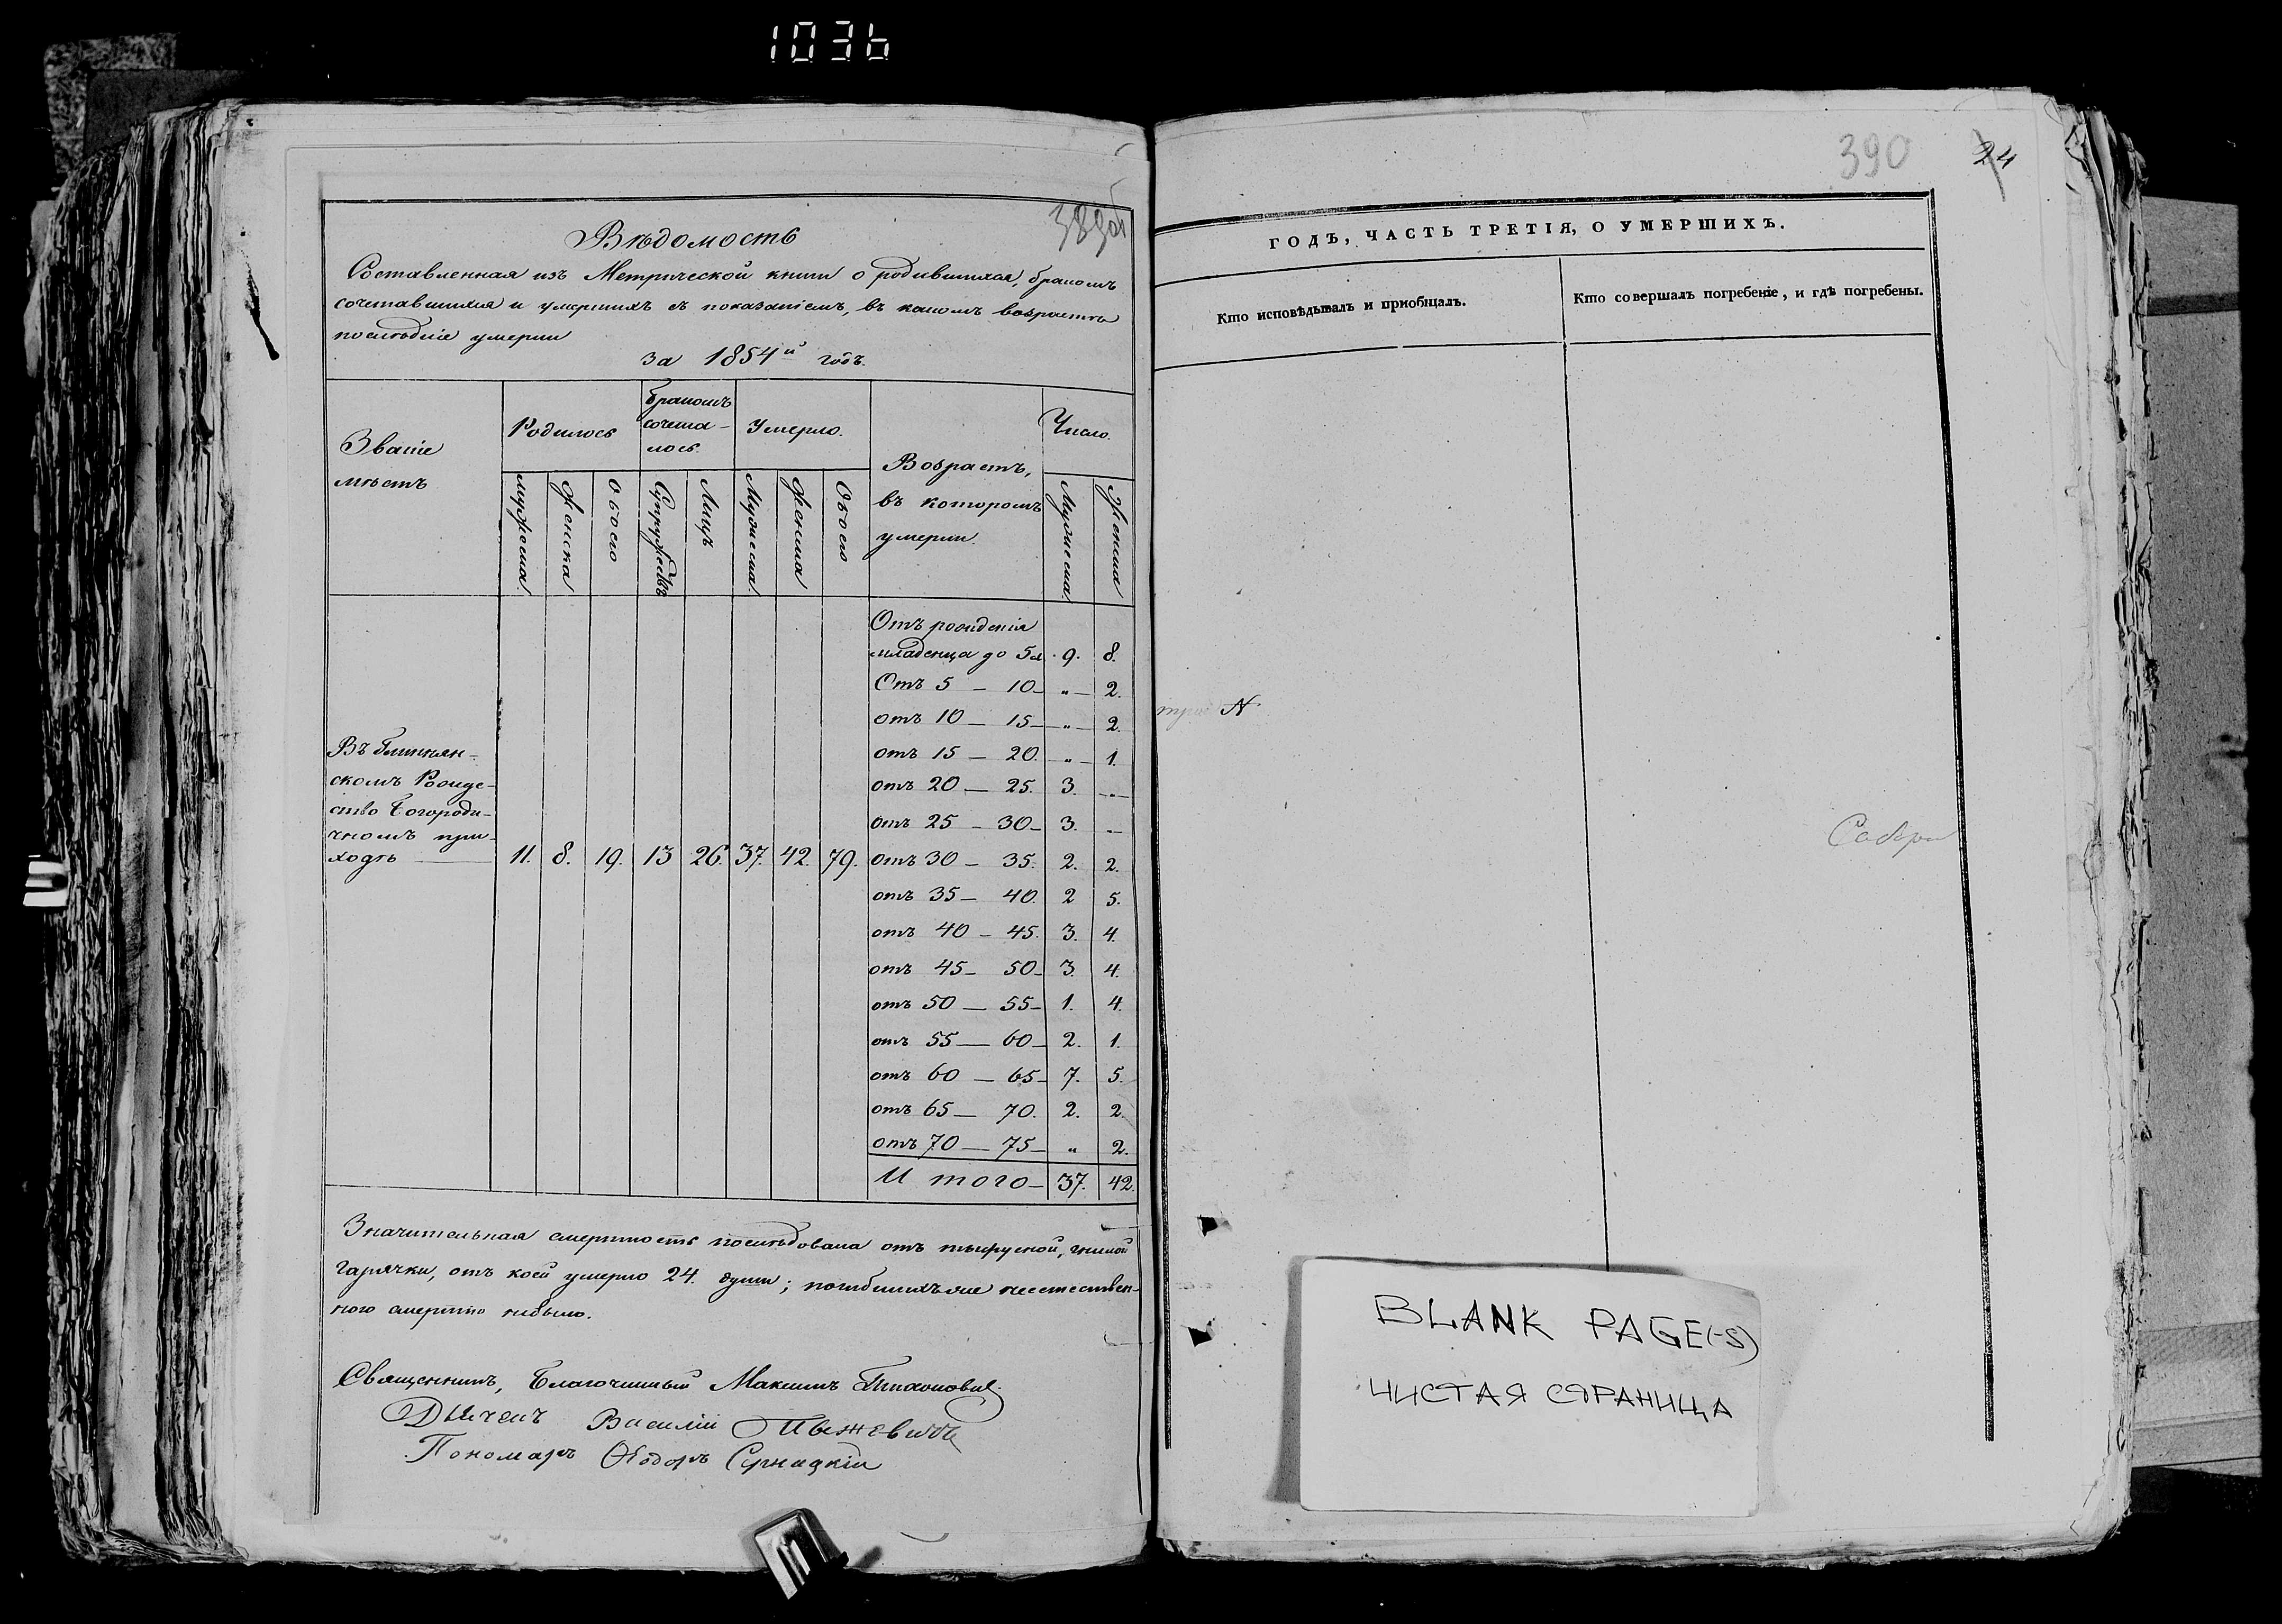 1036
389об
Вѣдомость
Составленная изъ Метрической книги о родившихся, бракомъ
сочетавшихся и умершихъ съ показаніемъ, въ какомъ возрастѣ
послѣдніе умерли
за 1854й годъ.
Званіе мѣстъ
Родилось
бракомъ сочета-лось.
Умерло.
Возрастъ, въ которомъ умерли.
Число.
мужеска
женска
обоего
Супружествъ
Лицъ
Мужеска
женска
Обоего
Мужеска
женска
Отъ рожденія
младенца до 5л. 9. 8.
Отъ 5 — 10 — „ — 2.
отъ 10 — 15 — „ — 2.
отъ 15 — 20. — „ — 1.
отъ 20 — 25. 3. „
отъ 25 — 30 — 3. „
Въ
скомъ Рожде-
ство Богороди-
чномъ при-
ходѣ — 11. 8. 19. 13 26. 37. 42. 79. отъ 30 — 35. 2. 2.
отъ 35 — 40. 2 5.
отъ 40 — 45. 3. 4.
отъ 45 — 50 — 3. 4.
отъ 50 — 55 — 1. 4.
отъ 55 — 60 — 2. 1.
отъ 60 — 65 — 7. 5.
отъ 65 — 70. 2. 2.
отъ 70 — 75 — „ 2.
И того — 37. 42.
Значительная смертность послѣдовала отъ тыфусной, гнилой
гарячки, отъ коей умерло 24. души; погибшихъ же неестествен-
ного смертію небыло.
Священникъ, Благочинный Максимъ
Дьячекъ Василій
Пономарь Ѳеодоръ
390
24
ГОДЪ, ЧАСТЬ ТРЕТІЯ, О УМЕРШИХЪ.
Кто исповѣдывалъ и пріобщалъ.
Кто совершалъ погребеніе, и гдѣ погребены.
N
BLANK PAGE(-S)
ЧИСТАЯ СТРАНИЦА